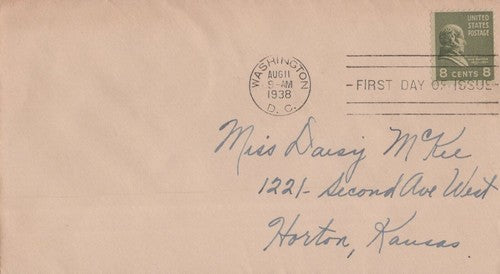 UNITED
STATES
POSTAGE
8 CENTS 8
WASHINGTON
AUG 11
9-AM
1938
D. C.
FIRST DAY OF ISSUE
Miss Daisy McKee
1221- Second Ave West
Horton, Kansas.